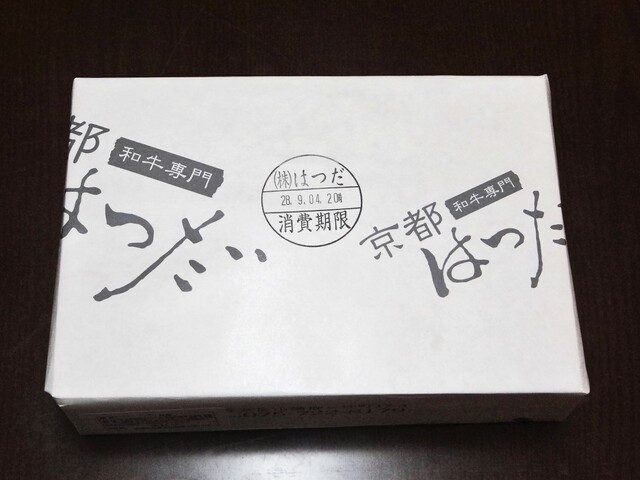 京都
和牛専門
はつだ
(株)はつだ
28.9.04.20時
消費期限
京都
和牛専門
はつだ